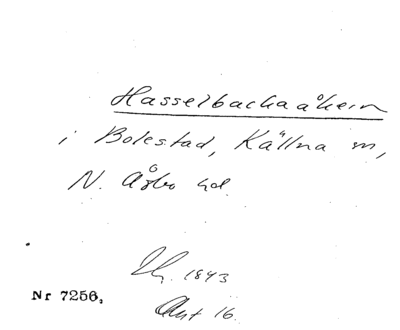 Hasselbackaåkern
i Bolestad, Källna sn,
N. Åsbo hd
1843
Nr 7256,
Akt 16.